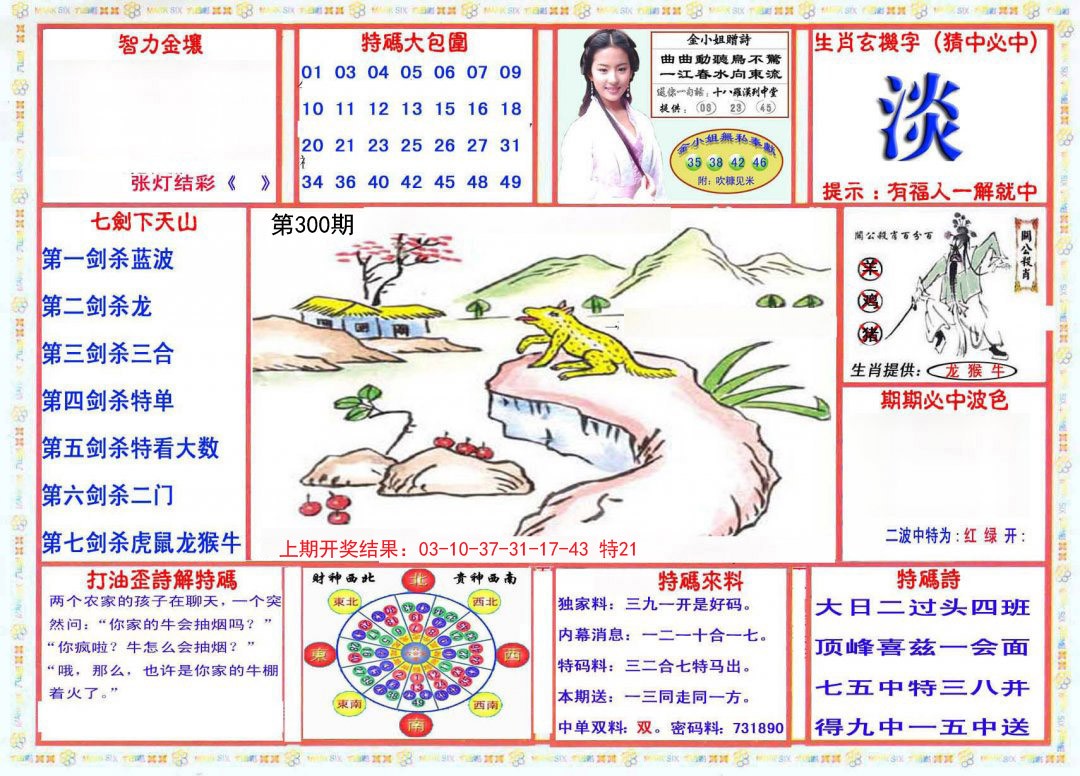 智力金壤
张灯结彩《 》
特碼大包圍
01 03 04 05 06 07 09
10 11 12 13 15 16 18
20 21 23 25 26 27 31
34 36 40 42 45 48 49
金小姐赠詩
曲曲動聽鳥不驚
一江春水向東流
送你一句話：十八羅漢列中堂
提供： 08 23 45
金小姐無私奉獻
35 38 42 46
附：吹糠见米
生肖玄機字（猜中必中）
淡
提示：有福人一解就中
七劍下天山
第一剑杀蓝波
第二剑杀龙
第三剑杀三合
第四剑杀特单
第五剑杀特看大数
第六剑杀二门
第七剑杀虎鼠龙猴牛
第300期
上期开奖结果：03-10-37-31-17-43 特21
關公殺肖百分百
關公殺肖
羊
鸡
猪
生肖提供： 龙 猴 牛
期期必中波色
二波中特为：红 绿 开：
打油歪詩解特碼
两个农家的孩子在聊天，一个突
然问：“你家的牛会抽烟吗？”
“你疯啦？牛怎么会抽烟？”
“哦，那么，也许是你家的牛棚
着火了。”
财神西北 贵神西南
北
東北
西北
東
西
東南
西南
南
特碼來料
独家料：三九一开是好码。
内幕消息：一二一十合一七。
特码料：三二合七特马出。
本期送：一三同走同一方。
中单双料：双。密码料：731890
特碼詩
大日二过头四班
顶峰喜兹一会面
七五中特三八并
得九中一五中送